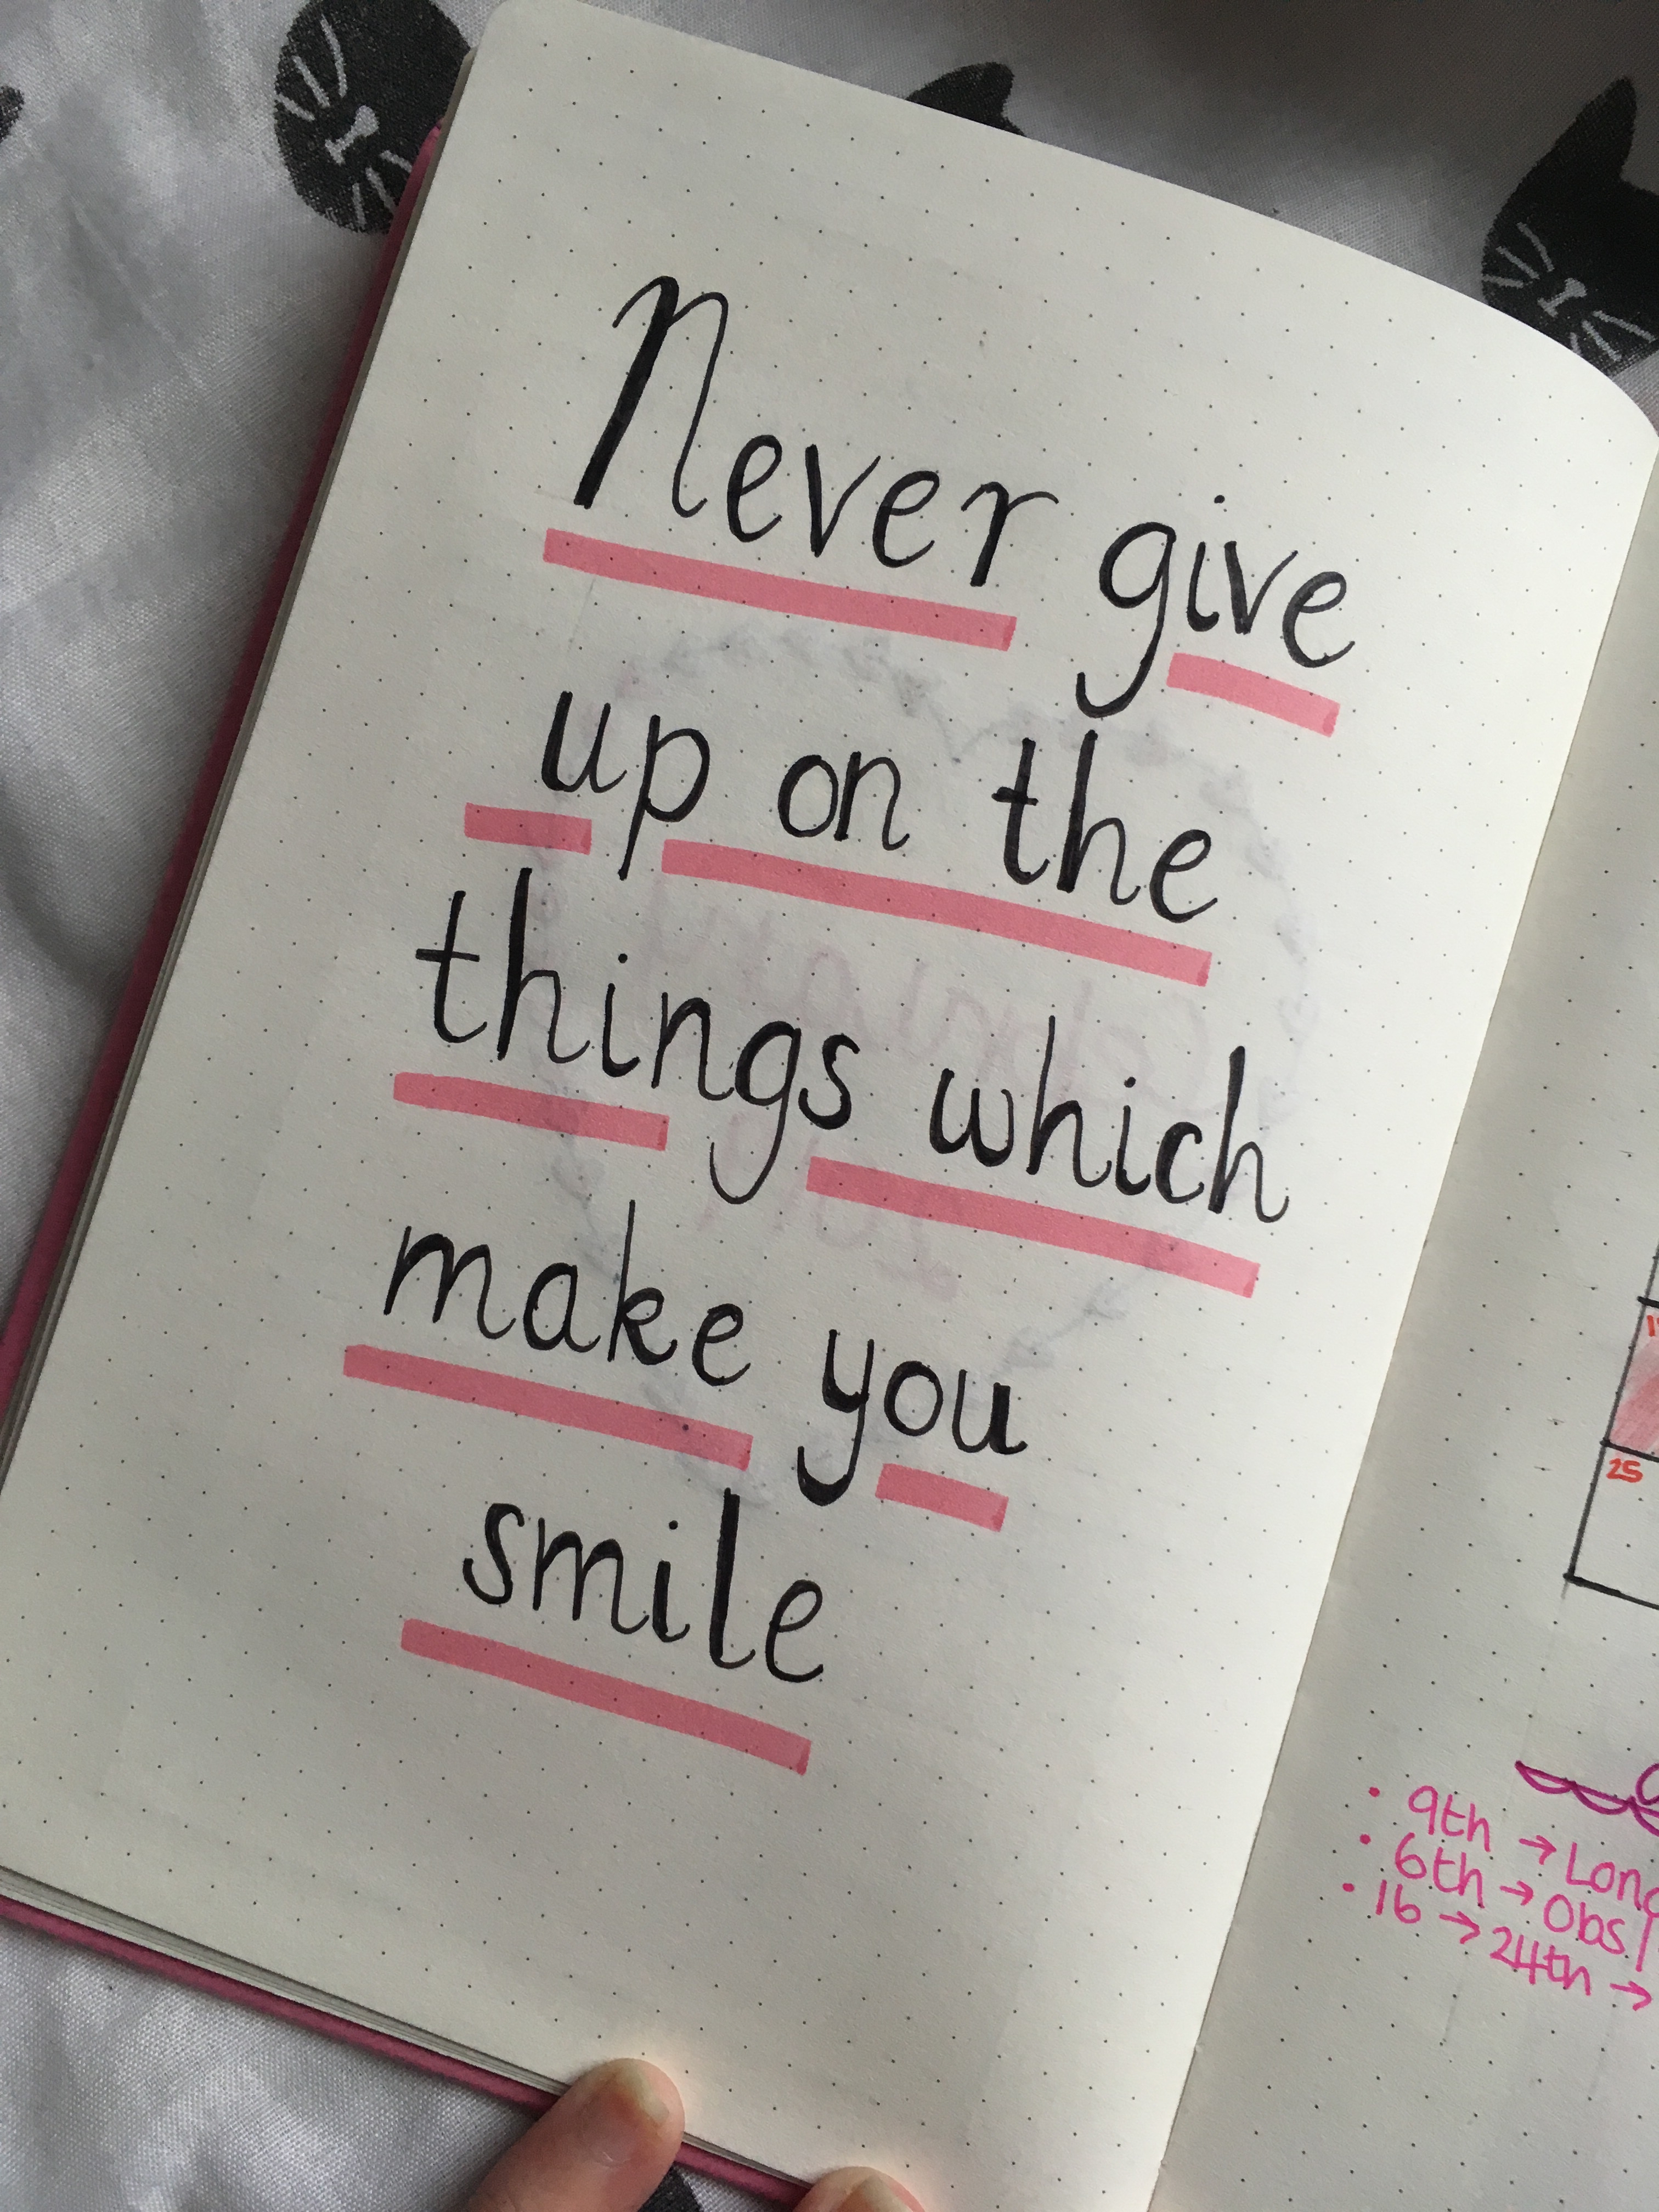 Never give
up on the
things which
make you
smile
25
• 9th →
• 6th → Obs
• 16 → 24th →